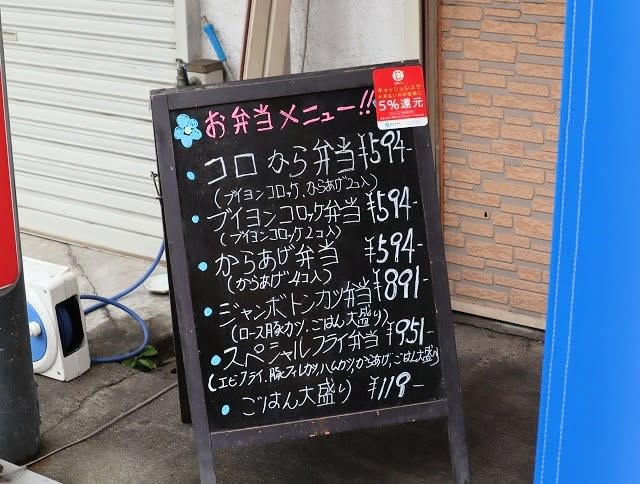 お弁当メニュー!!
キャッシュレスで
5%還元
コロから弁当 ¥594-
(ブイヨンコロッケ、からあげ2コ入)
ブイヨンコロッケ弁当 ¥594-
(ブイヨンコロッケ2コ入)
からあげ弁当 ¥594-
(からあげ4コ入)
ジャンボトンカツ弁当 ¥891-
(ロース豚カツ、ごはん大盛り)
スペシャルフライ弁当 ¥951-
(エビフライ、豚ヒレカツ、ハムカツ、からあげ、ごはん大盛り)
ごはん大盛り ¥119-